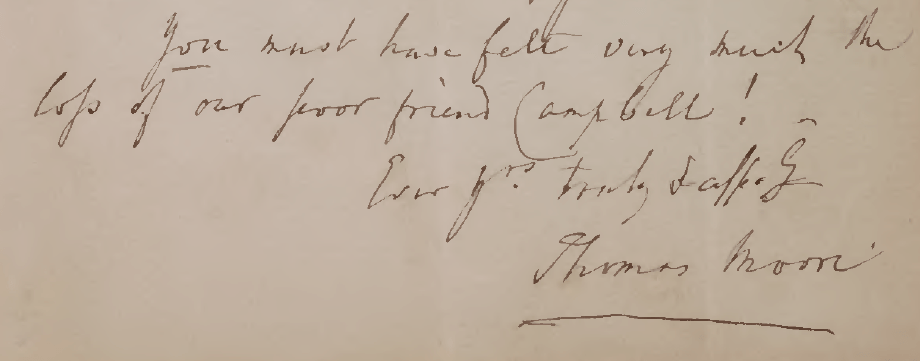 You must have felt very much the
loss of our poor friend Campbell!
Ever yrs. truly & affec.ly
Thomas Moore